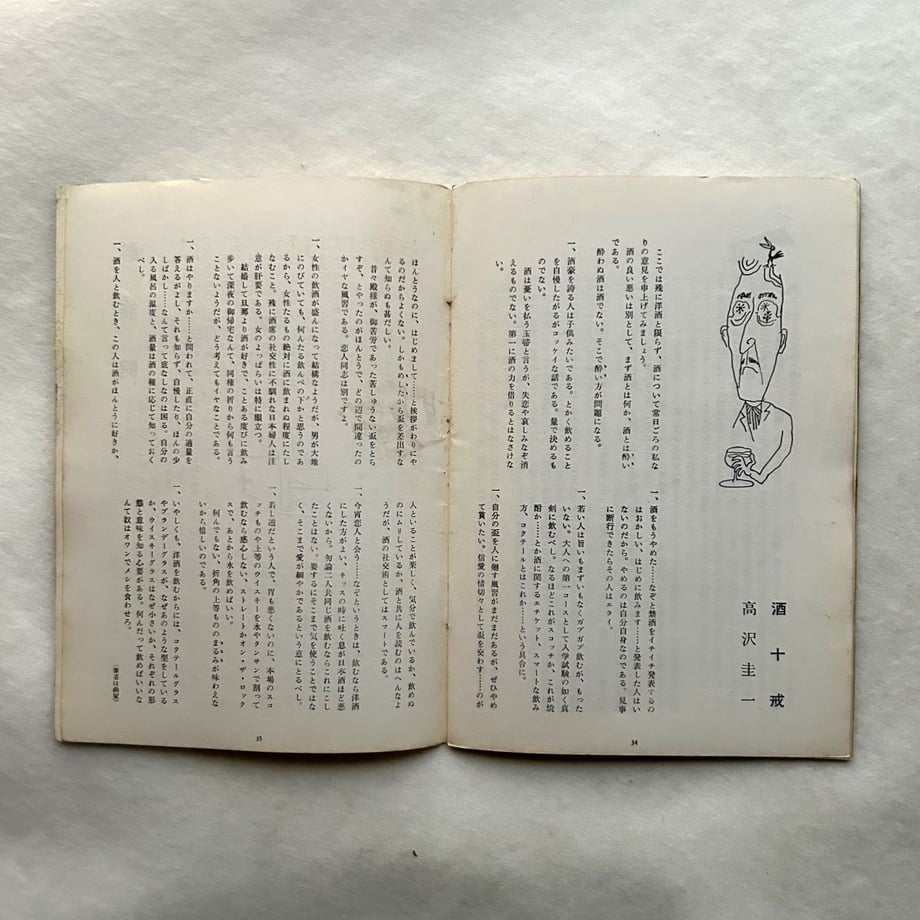 酒十戒
高沢圭一
ここでは殊に洋酒と限らず、酒について常日ごろの私な
りの意見を申上げてみましょう。
酒の良い悪いは別として、まず酒とは何か、酒とは酔い
である。
酔わぬ酒は酒でない。そこで酔い方が問題になる。
一、酒豪を誇る人は子供みたいである。とかく飲めること
を自慢したがるがコッケイな話である。量で決めるも
のでない。
酒は憂いを払う玉帚と言うが、失恋や哀しみなぞ酒
えるものでない。第一に酒の力を借りるとはなさけな
い。
一、酒をもうやめた……なぞと禁酒をイチイチ発表するの
はおかしい、はじめに飲みます……と発表した人はい
ないのだから。やめるのは自分自身なのである。見事
に断行できたらその人はエライ。
一、若い人は旨いもまずいもなくガブガブ飲むが、もった
いない。大人への第一コースとして入学試験の如く真
剣に飲むべし。なるほどこれがスコッチか、これが焼
酎か……とか酒に関するエチケット、スマートな飲み
方、コクテールとはこれか……という具合に。
一、自分の盃を人に廻す風習がまだまだあるが、ぜひやめ
て貰いたい。信愛の情切々として盃を交わす……のが
34
ほんとうなのに、はじめまして……と挨拶がわりにや
るのだからよくない。しかもめしたから盃を差出すな
んて知らぬも甚だしい。
昔々殿様が、御苦労であった苦しゅうない盃をとら
すぞ、とやったのがほんとうで、どの辺で間違ったの
かイヤな風習である。恋人同志は別ですよ。
一、女性の飲酒が盛んになって結構なようだが、男が大地
にのびていても、何んたる飲んべの下かと思うのであ
るから、女性たるもの絶対に酒に飲まれぬ程度にたし
なむこと。殊に酒席の社交性に不馴れな日本婦人は注
意が肝要である。女のよっぱらいは特に眼立つ。
結婚して旦那より酒が好きで、ことある度びに飲み
歩いて深夜の御帰宅なんて、同種の折りから何も言う
ことないようだが、どう考えてもイヤなことである。
一、酒はやりますか……と問われて、正直に自分の適量を
答えるがよし、それも知らず、自慢したり、ほんの少
しばかし……なんて言って底なしなのは困る。自分の
入る風呂の温度と、酒量は酒の種に応じて知っておく
べし。
一、酒を人と飲むとき、この人は酒がほんとうに好きか、
人といることが楽しく、気分で飲んでいるか、飲めぬ
のにムリしているか、酒と共に人を読むのはへんなよ
うだが、酒の社交術としてはスマートである。
一、今宵恋人と会う……なぞというときは、飲むなら洋酒
にした方がよい、キッスの時に吐く息が日本酒ほど悪
くないから。勿論二人共同じ酒を飲むならこれにこし
たことはない。要するにそこまで気を使うことではな
く、そこまで愛が細やかであるという意にとるべし。
一、若し通だという人で、胃も悪くないのに、本場のスコ
ッチものや上等のウイスキーを水やタンサンで割って
飲むなら感心しない、ストレートかオン・ザ・ロック
スで、あとから水を飲めばいい。
何んでもない、折角の上等もののまるみが味わえな
いから惜しいのである。
一、いやしくも、洋酒を飲むからには、コクテールグラス
やブランデーグラスが、なぜあのような型をしている
か、ウイスキーグラスはなぜ小さいか、それぞれの形
態と意味を知る心要がある。何んだって飲めばいいな
んて奴はオワンでメシを食わせろ。
（筆者は画家）
35